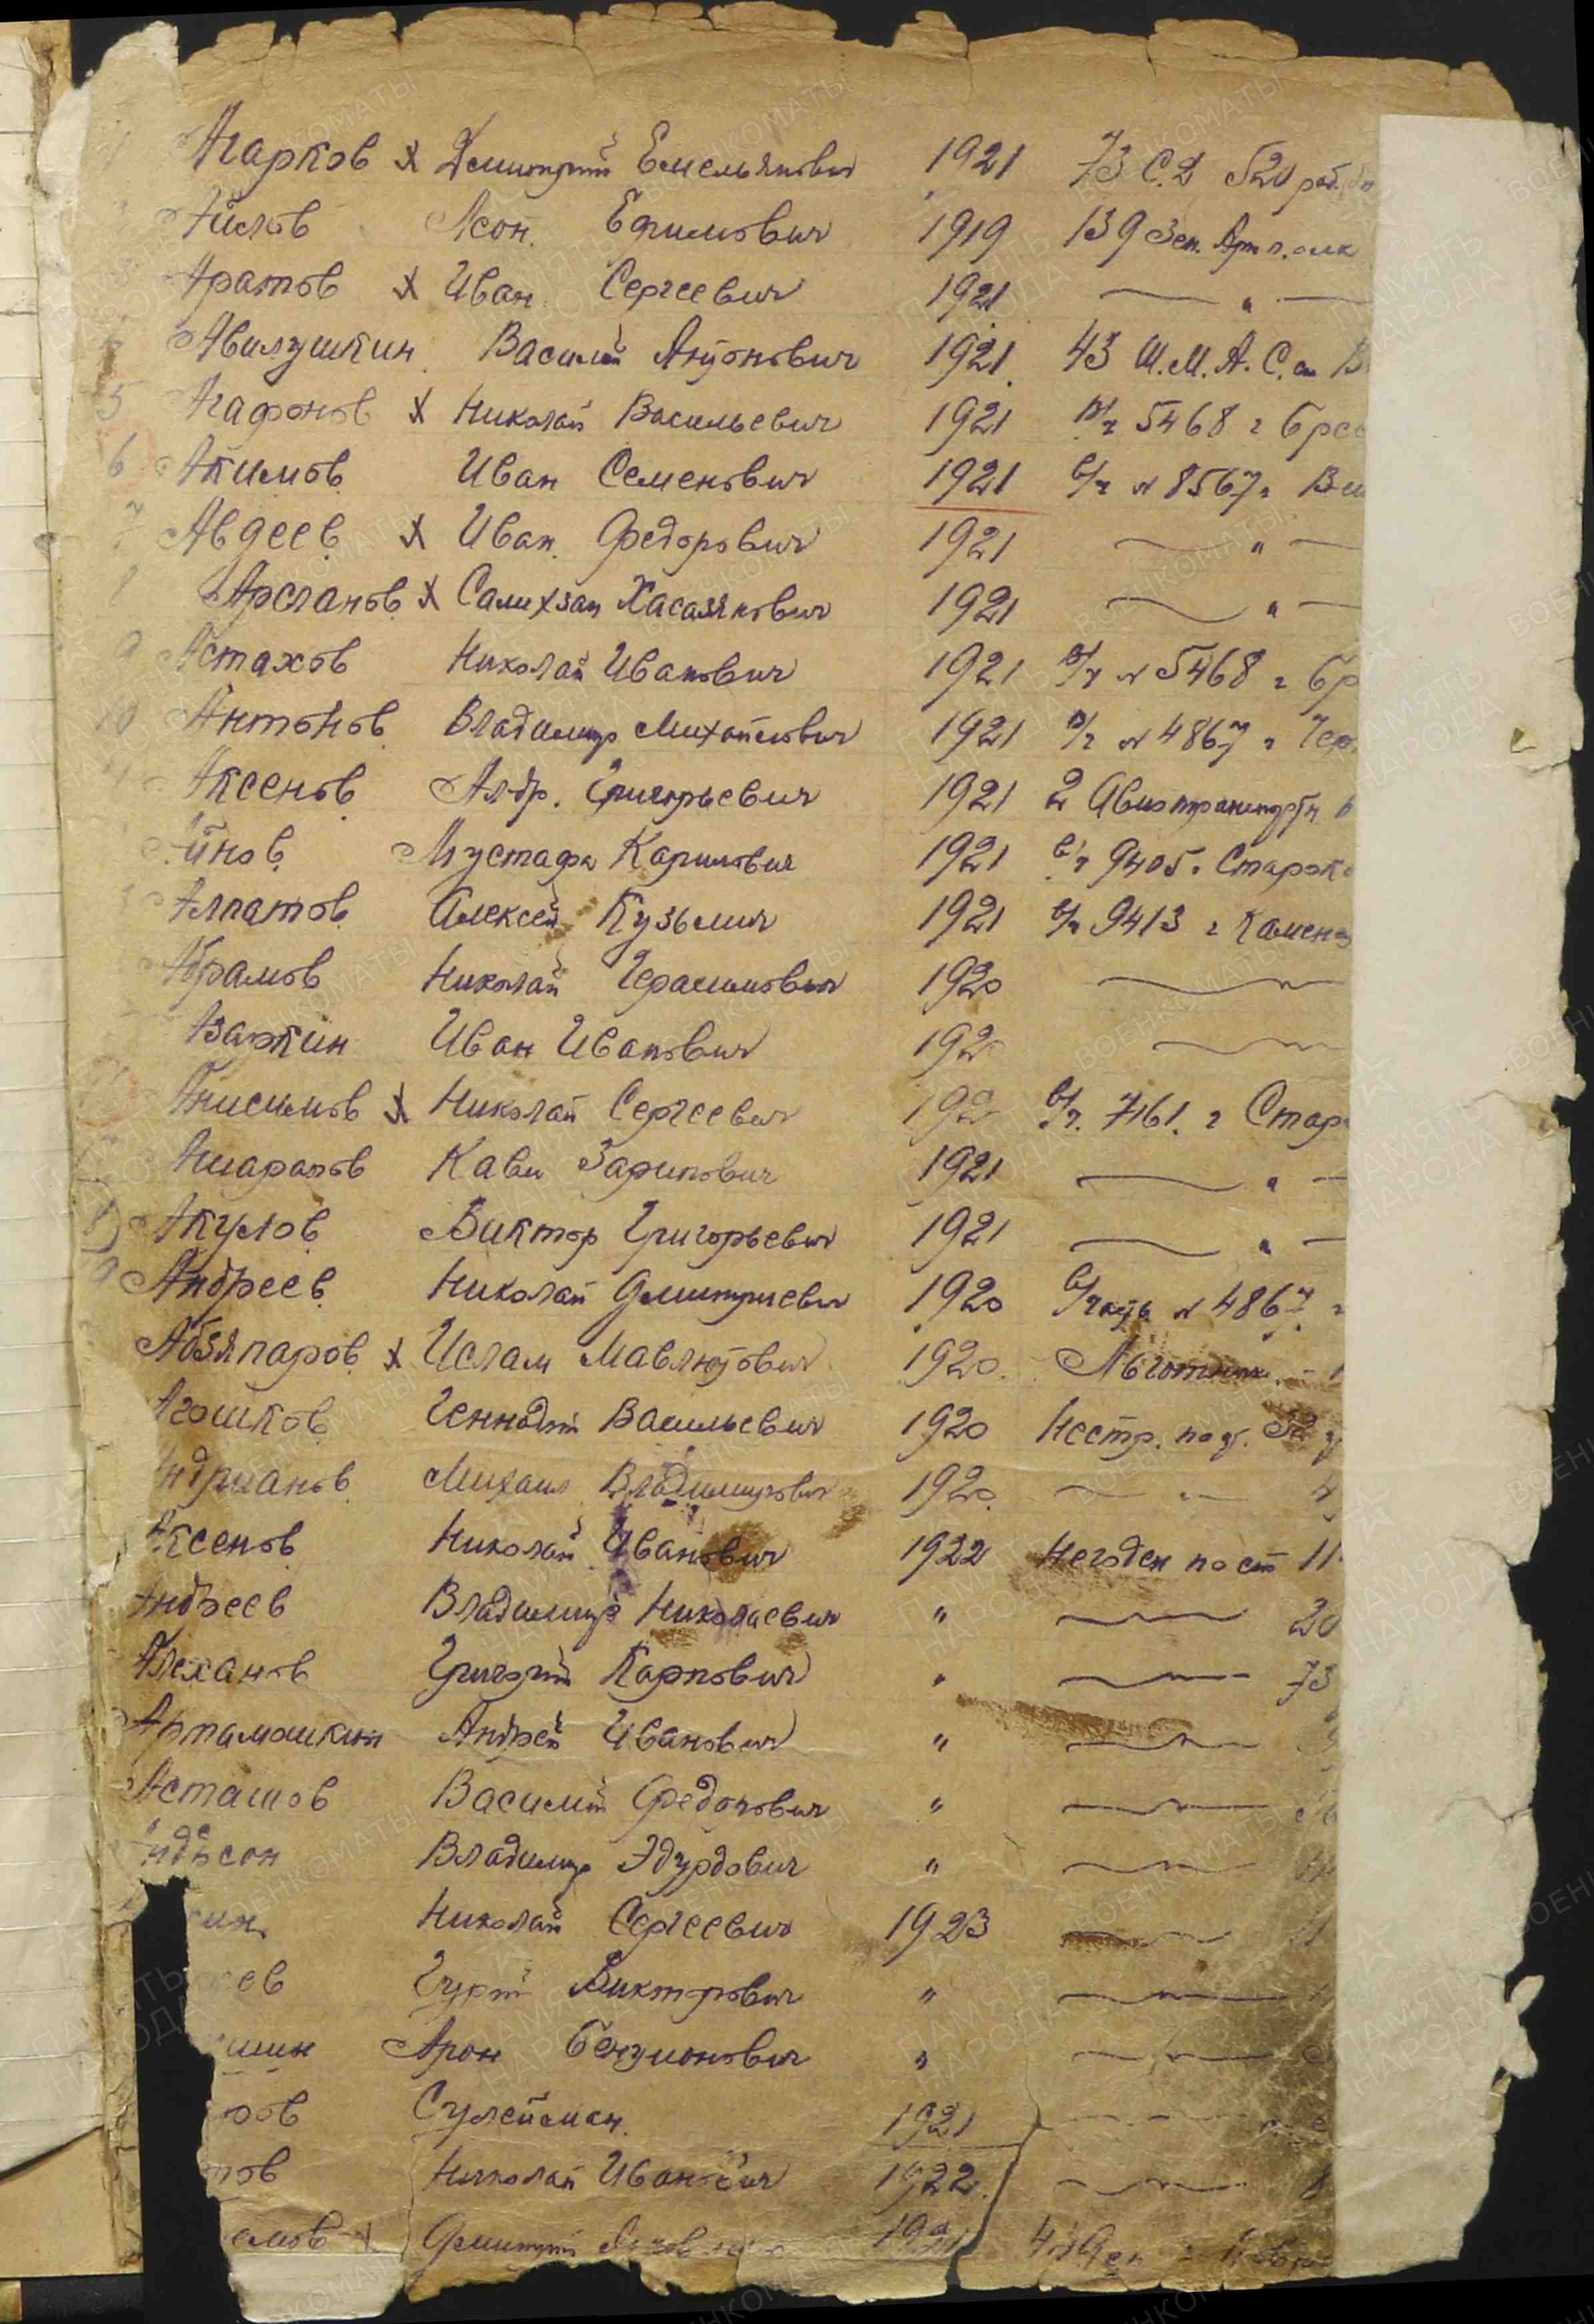 Агарков х Дмитрий Емельянович 1921 73 С.Д 520 раб.
Айлов Лсон. Ефимович 1919 139 Зен. Арт п.
Аратов х Иван Сергеевич 1921 — " —
Авилушкин Василий Антонович 1921 43 Ш.М.А.С.
5 Агафонов х Николай Васильевич 1921 п/ч 5468 г Брес
6 Акимов Иван Семенович 1921 в/ч № 8567 г
7 Авдеев х Иван Федорович 1921 — " —
8 Арсланов х Салихзан 1921 — " —
9 Астахов Николай Иванович 1921 п/ч № 5468 г Бр
10 Антонов Владимир Михайлович 1921 п/ч № 4867 г Чер
11 Аксенов Ал-др. Григорьевич 1921 2
Айнов Мустафа Каримович 1921 в/ч 9405 г Старок
Алпатов Алексей Кузьмич 1921 в/ч 9413 г Каменец
Абрамов Николай Герасимович 1920 —
Иван Иванович 192 —
Анисимов х Николай Сергеевич 192 в/ч. 7161. г Стар
Кави Зарипович 1921 — " —
Акулов Виктор Григорьевич 1921 — " —
Андреев Николай Дмитриевич 1920 в/часть № 4867 г
Абзяпаров х Ислам Мавлютович 1920. Льготник. -
Агошков Геннадий Васильевич 1920 Нестр. по
ндрианов Михаил Владимирович 1920. — " — 4
Аксенов Николай Иванович 1922 Негоден по ст 11
Андреев Владимир Николаевич " — 20
Алеханов Григорий Карпович " — 73
Артамошкин Андрей Иванович " —
Асташов Василий Федорович " —
Владимир Эдурдович " —
син Николай Сергеевич 1923 —
еев Гурий Викторович " —
шин Арон Бенционович " —
ров Сулейман. 1921 —
тов Николай Иванович 1922. —
емов х Дмитрий 1921